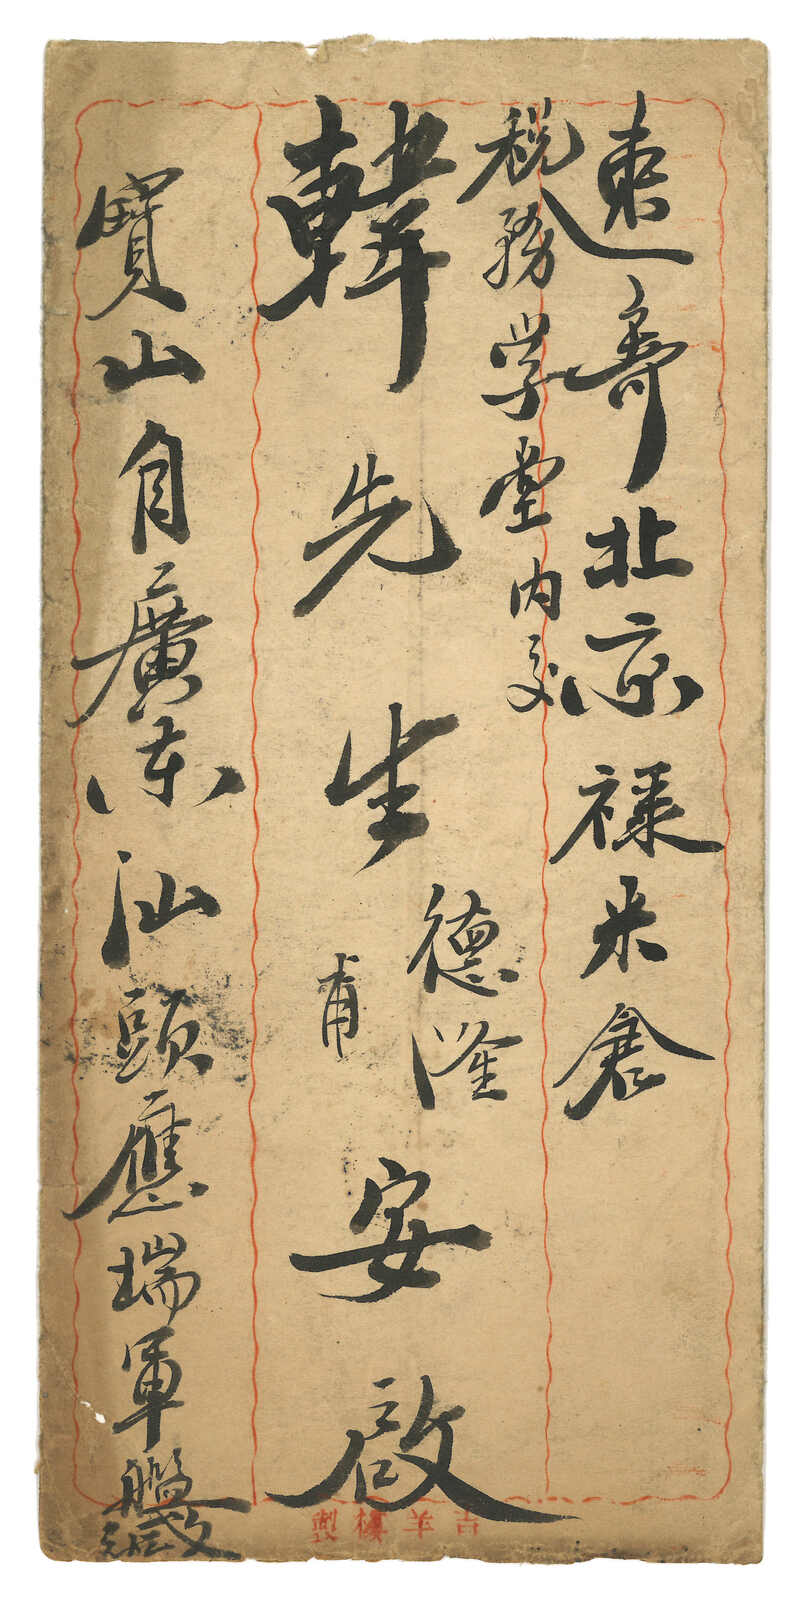 速寄北京祿米倉
稅務学堂內交
韓先生德隆甫安啟
寶山自廣东汕頭應瑞軍艦
吉羊樓製